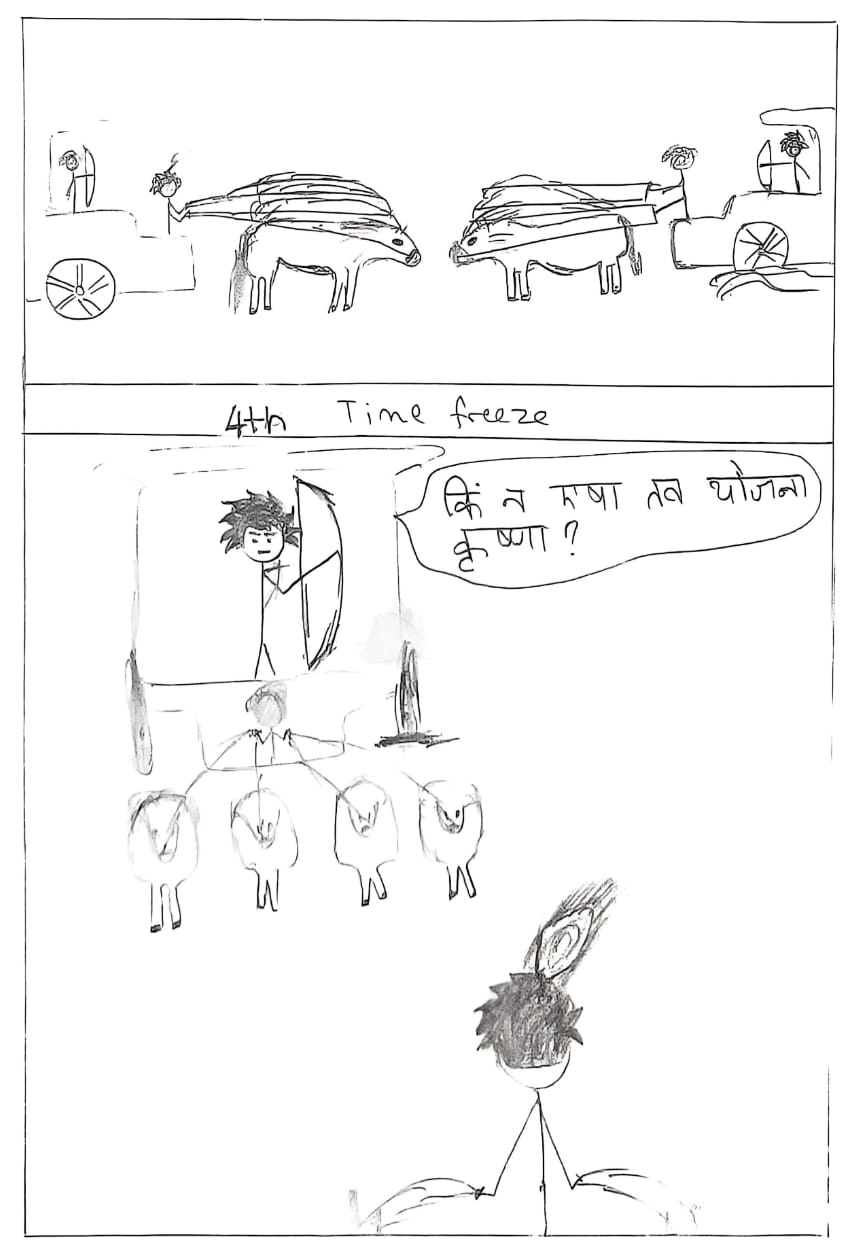 4th Time freeze
किं न एषा तव योजना
कृष्णा?